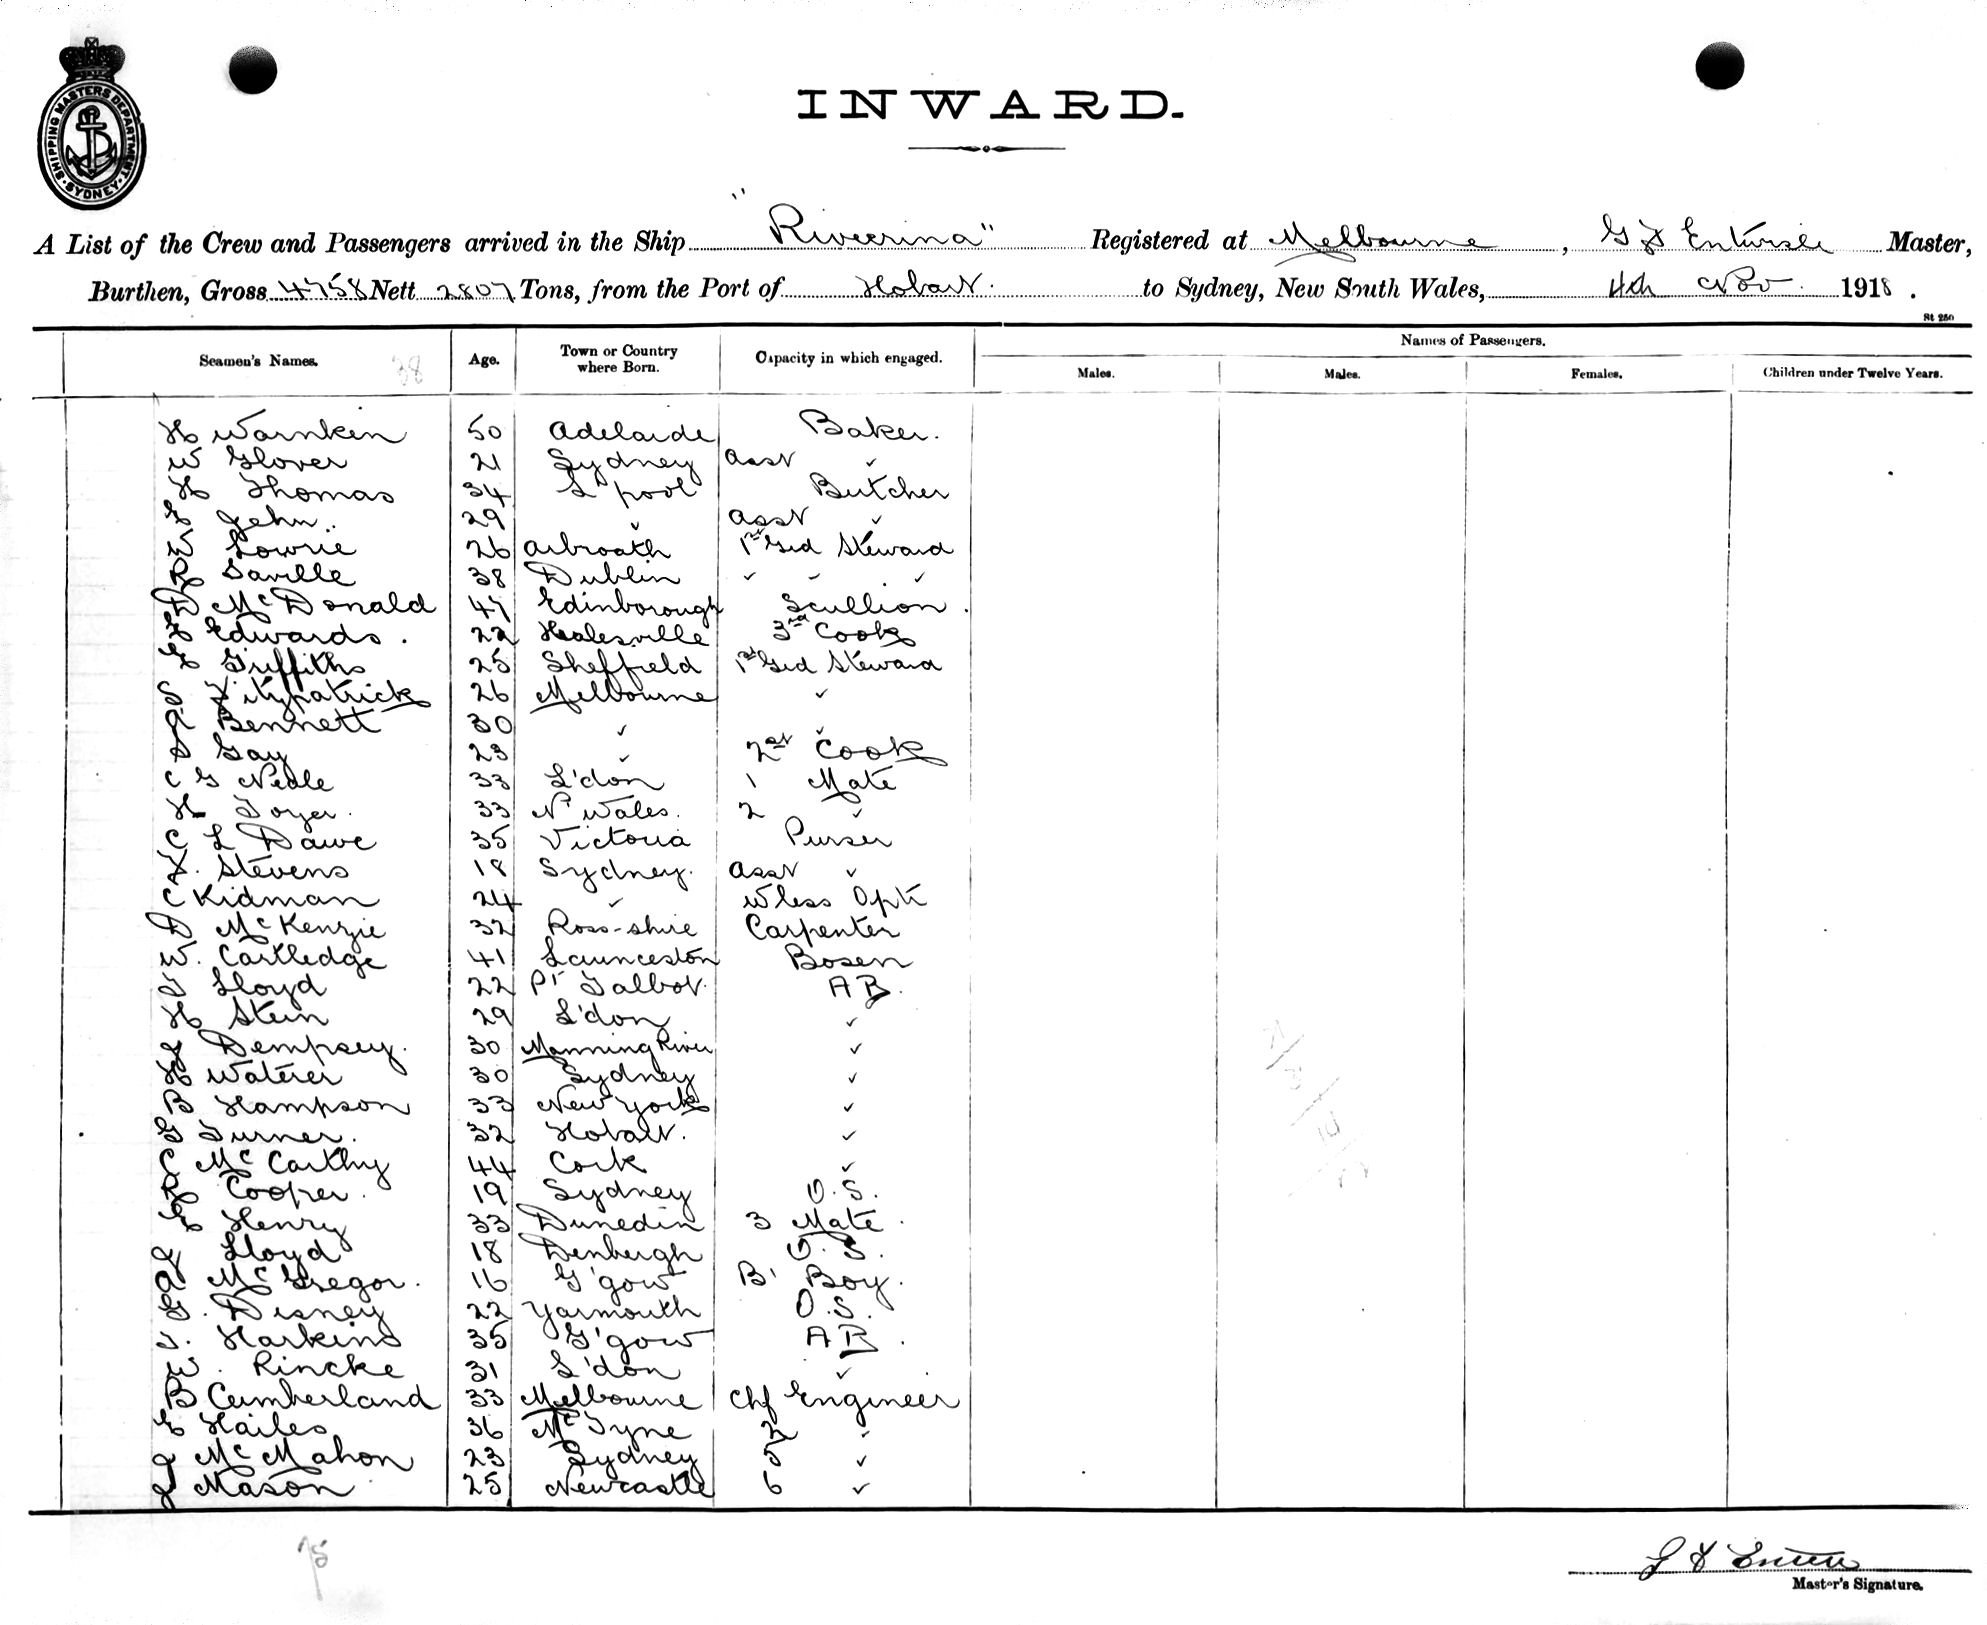 SHIPPING MASTERS DEPARTMENT. SYDNEY.
INWARD.
A List of the Crew and Passengers arrived in the Ship "Riverina" Registered at Melbourne, G Entwisle Master,
Burthen, Gross 4758 Nett 2807 Tons, from the Port of Hobart. to Sydney, New South Wales, 4th Nov. 1918.
St 250
Names of Passengers.
Seamen's Names. 38 Age. Town or Country where Born. Capacity in which engaged. Males. Males. Females. Children under Twelve Years.
H Warnken 50 Adelaide Baker.
W Glover 21 Sydney Asst ✓
H Thomas 34 L'pool Butcher
John 29 ✓ Asst ✓
Lowrie 26 Arbroath 1st Grd Steward
R Saville 38 Dublin ✓ ✓ ✓
D McDonald 47 Edinborough Scullion.
H Edwards. 22 Healesville 3rd Cook
E Griffiths 25 Sheffield 1st Grd Steward
S. Fitzpatrick 26 Melbourne ✓
Bennett 30 ✓ ✓
Gay 23 ✓ Cook
C G Neale 33 L'don 1 Mate
H Toyer. 33 N Wales. 2 ✓
C L Dawe 35 Victoria Purser
F. Stevens 18 Sydney. Asst ✓
C Kidman 24 ✓ Wless Optr
D McKenzie 32 Ross-shire Carpenter
W. Cartledge 41 Launceston Bosen
T Lloyd 22 Pt Talbot. AB.
H Stein 29 L'don ✓
J Dempsey. 30 Manning River ✓
H Waterer 30 Sydney ✓
B Hampson 33 New York ✓
G Turner. 32 Hobart. ✓
C McCarthy 44 Cork ✓
R Cooper. 19 Sydney O.S.
E Henry 33 Dunedin 3 Mate.
J Lloyd 18 Denbergh O.S.
A McGregor. 16 G'gow B' Boy.
G. Disney 22 Yarmouth O.S.
T. Harkins 35 G'gow AB.
W. Rincke 31 L'don ✓
B Cumberland 33 Melbourne Chf Engineer
E Hailes 36 Tyne ✓
J McMahon 23 Sydney 5 ✓
J Mason 25 Newcastle 6 ✓
75
Master's Signature.